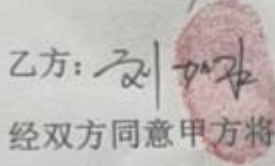 乙方：刘
经双方同意甲方将